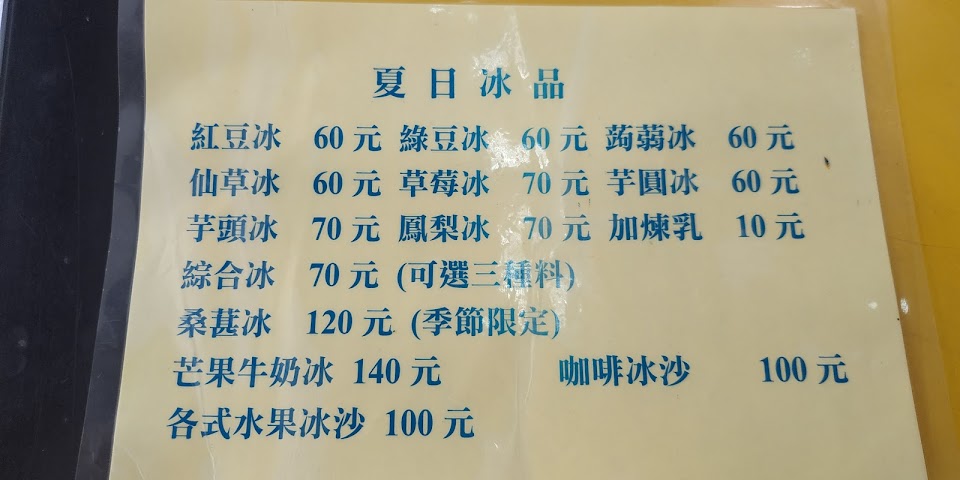 夏日冰品
紅豆冰 60元 綠豆冰 60元 蒟蒻冰 60元
仙草冰 60元 草莓冰 70元 芋圓冰 60元
芋頭冰 70元 鳳梨冰 70元 加煉乳 10元
綜合冰 70元 (可選三種料)
桑葚冰 120元 (季節限定)
芒果牛奶冰 140元 咖啡冰沙 100元
各式水果冰沙 100元